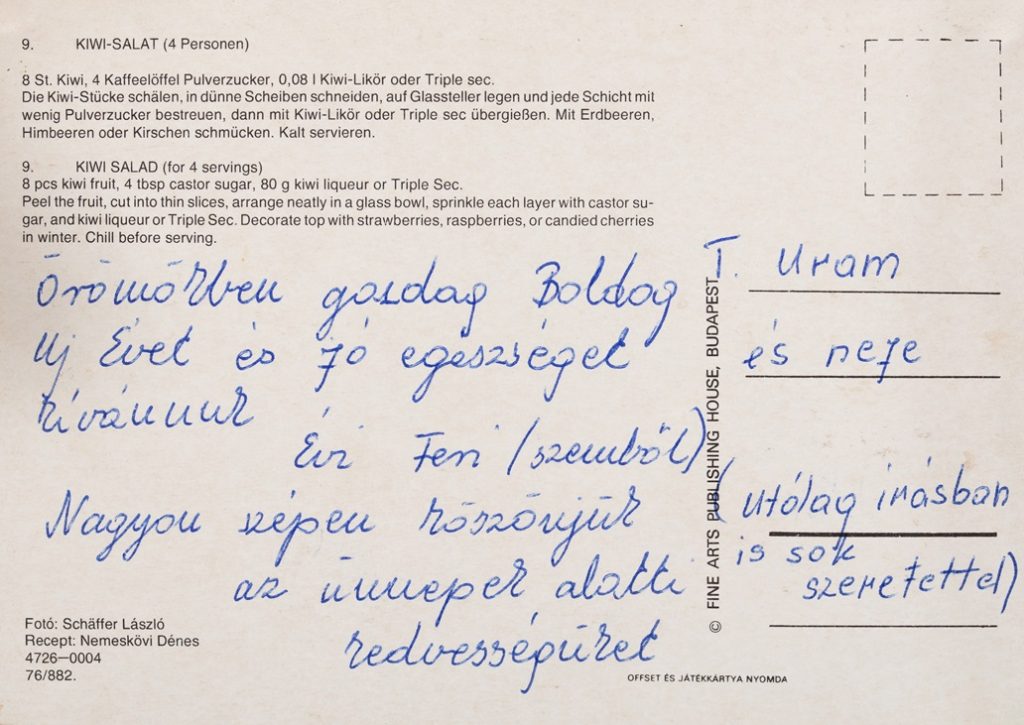 9. KIWI-SALAT (4 Personen)
8 St. Kiwi, 4 Kaffeelöffel Pulverzucker, 0,08 l Kiwi-Likör oder Triple sec.
Die Kiwi-Stücke schälen, in dünne Scheiben schneiden, auf Glassteller legen und jede Schicht mit
wenig Pulverzucker bestreuen, dann mit Kiwi-Likör oder Triple sec übergießen. Mit Erdbeeren,
Himbeeren oder Kirschen schmücken. Kalt servieren.
9. KIWI SALAD (for 4 servings)
8 pcs kiwi fruit, 4 tbsp castor sugar, 80 g kiwi liqueur or Triple Sec.
Peel the fruit, cut into thin slices, arrange neatly in a glass bowl, sprinkle each layer with castor su-
gar, and kiwi liqueur or Triple Sec. Decorate top with strawberries, raspberries, or candied cherries
in winter. Chill before serving.
Örömökben gazdag Boldog
Új Évet és jó egészséget
kívánunk
Évi Feri (szemből)
Nagyon szépen köszönjük
az ünnepek alatti
kedvességüket
Fotó: Schäffer László
Recept: Nemeskövi Dénes
4726—0004
76/882.
© FINE ARTS PUBLISHING HOUSE, BUDAPEST
T. Uram
és neje
(utólag írásban
is sok
szeretettel)
OFFSET ÉS JÁTÉKKÁRTYA NYOMDA